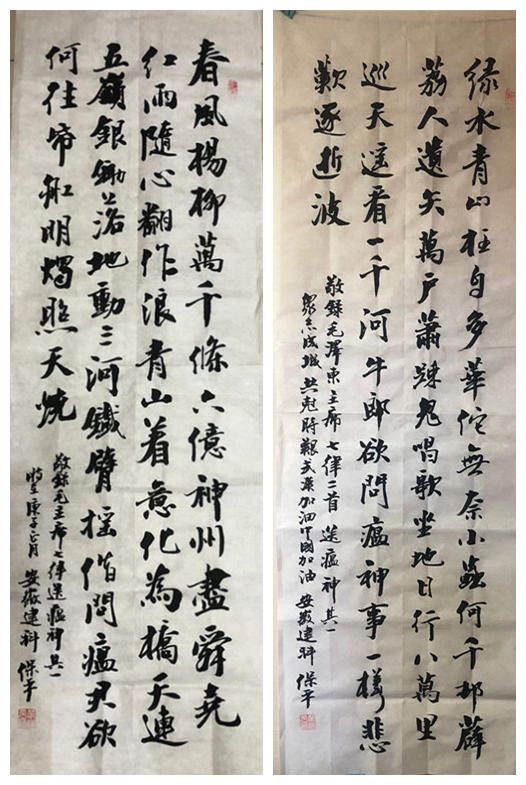 春風楊柳萬千條六億神州盡舜堯
紅雨隨心翻作浪青山着意化為橋天連
五嶺銀鋤落地動三河鐵臂搖借問瘟君欲
何往帋船明燭照天燒
敬錄毛主席七律送瘟神其一
時在庚子正月 安徽建科 保平
绿水青山枉自多華佗無奈小蟲何千邨薜
荔人遺矢萬戶蕭踈鬼唱歌坐地日行八萬里
巡天遥看一千河牛郎欲問瘟神事一樣悲
歎逐逝波
敬錄毛澤東主席七律二首 送瘟神其一
眾志成城 共尅時艱 武漢加油 中國加油 安徽建科 保平